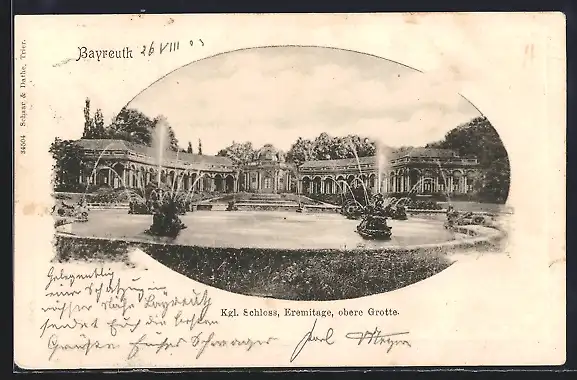 Bayreuth 26 VIII 03
34004 Schaar & Dathe, Trier.
Kgl. Schloss, Eremitage, obere Grotte.
Gelegentlich
einer
unserer Nähe Bayreuth
sendet Euch die besten
Grüsse Euer Schwager Karl